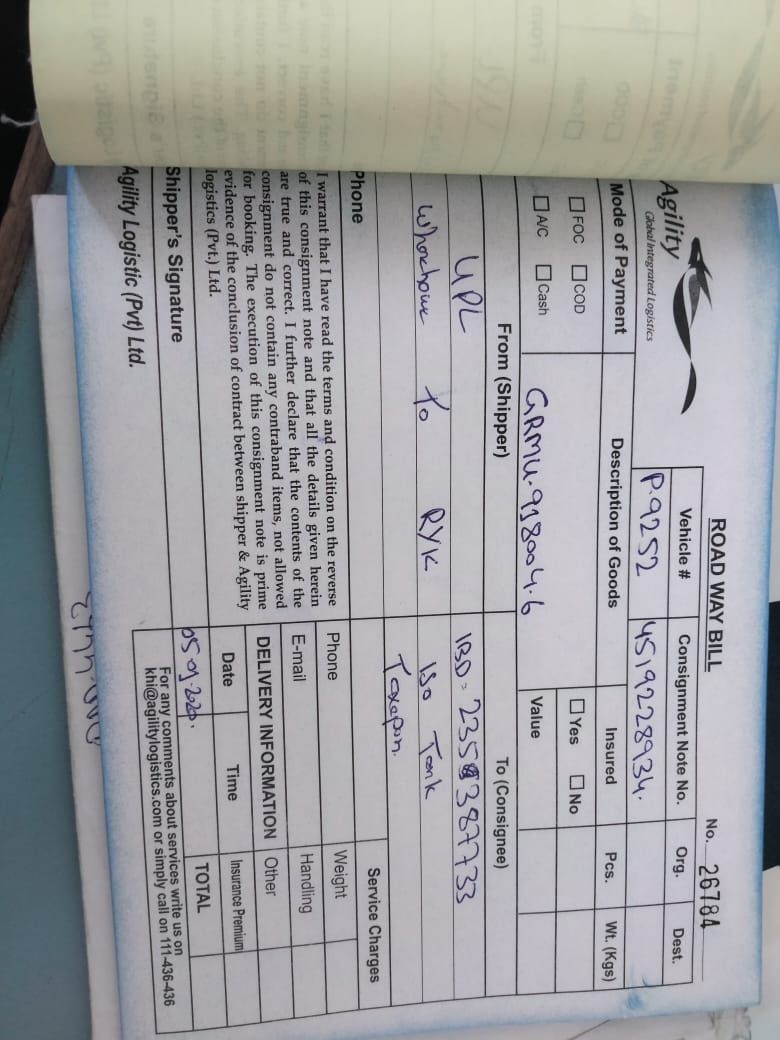 ROAD WAY BILL
No. 26784
Agility
Global Integrated Logistics
Vehicle #
Consignment Note No.
Org.
Dest.
P-9252
4519228934.
Mode of Payment
Description of Goods
Insured
Pcs.
Wt. (Kgs)
FOC
COD
Yes
No
A/C
Cash
GRMU-918004-6
Value
From (Shipper)
To (Consignee)
UPL
IBD=
387733
to RYK
ISO Tank
Texapon.
Service Charges
Phone
Phone
Weight
I warrant that I have read the terms and condition on the reverse
of this consignment note and that all the details given herein
are true and correct. I further declare that the contents of the
consignment do not contain any contraband items, not allowed
for booking. The execution of this consignment note is prime
evidence of the conclusion of contract between shipper & Agility
logistics (Pvt.) Ltd.
E-mail
Handling
DELIVERY INFORMATION
Other
Date
Time
Insurance Premium
TOTAL
Shipper's Signature
For any comments about services write us on
khi@agilitylogistics.com or simply call on 111-436-436
Agility Logistic (Pvt) Ltd.